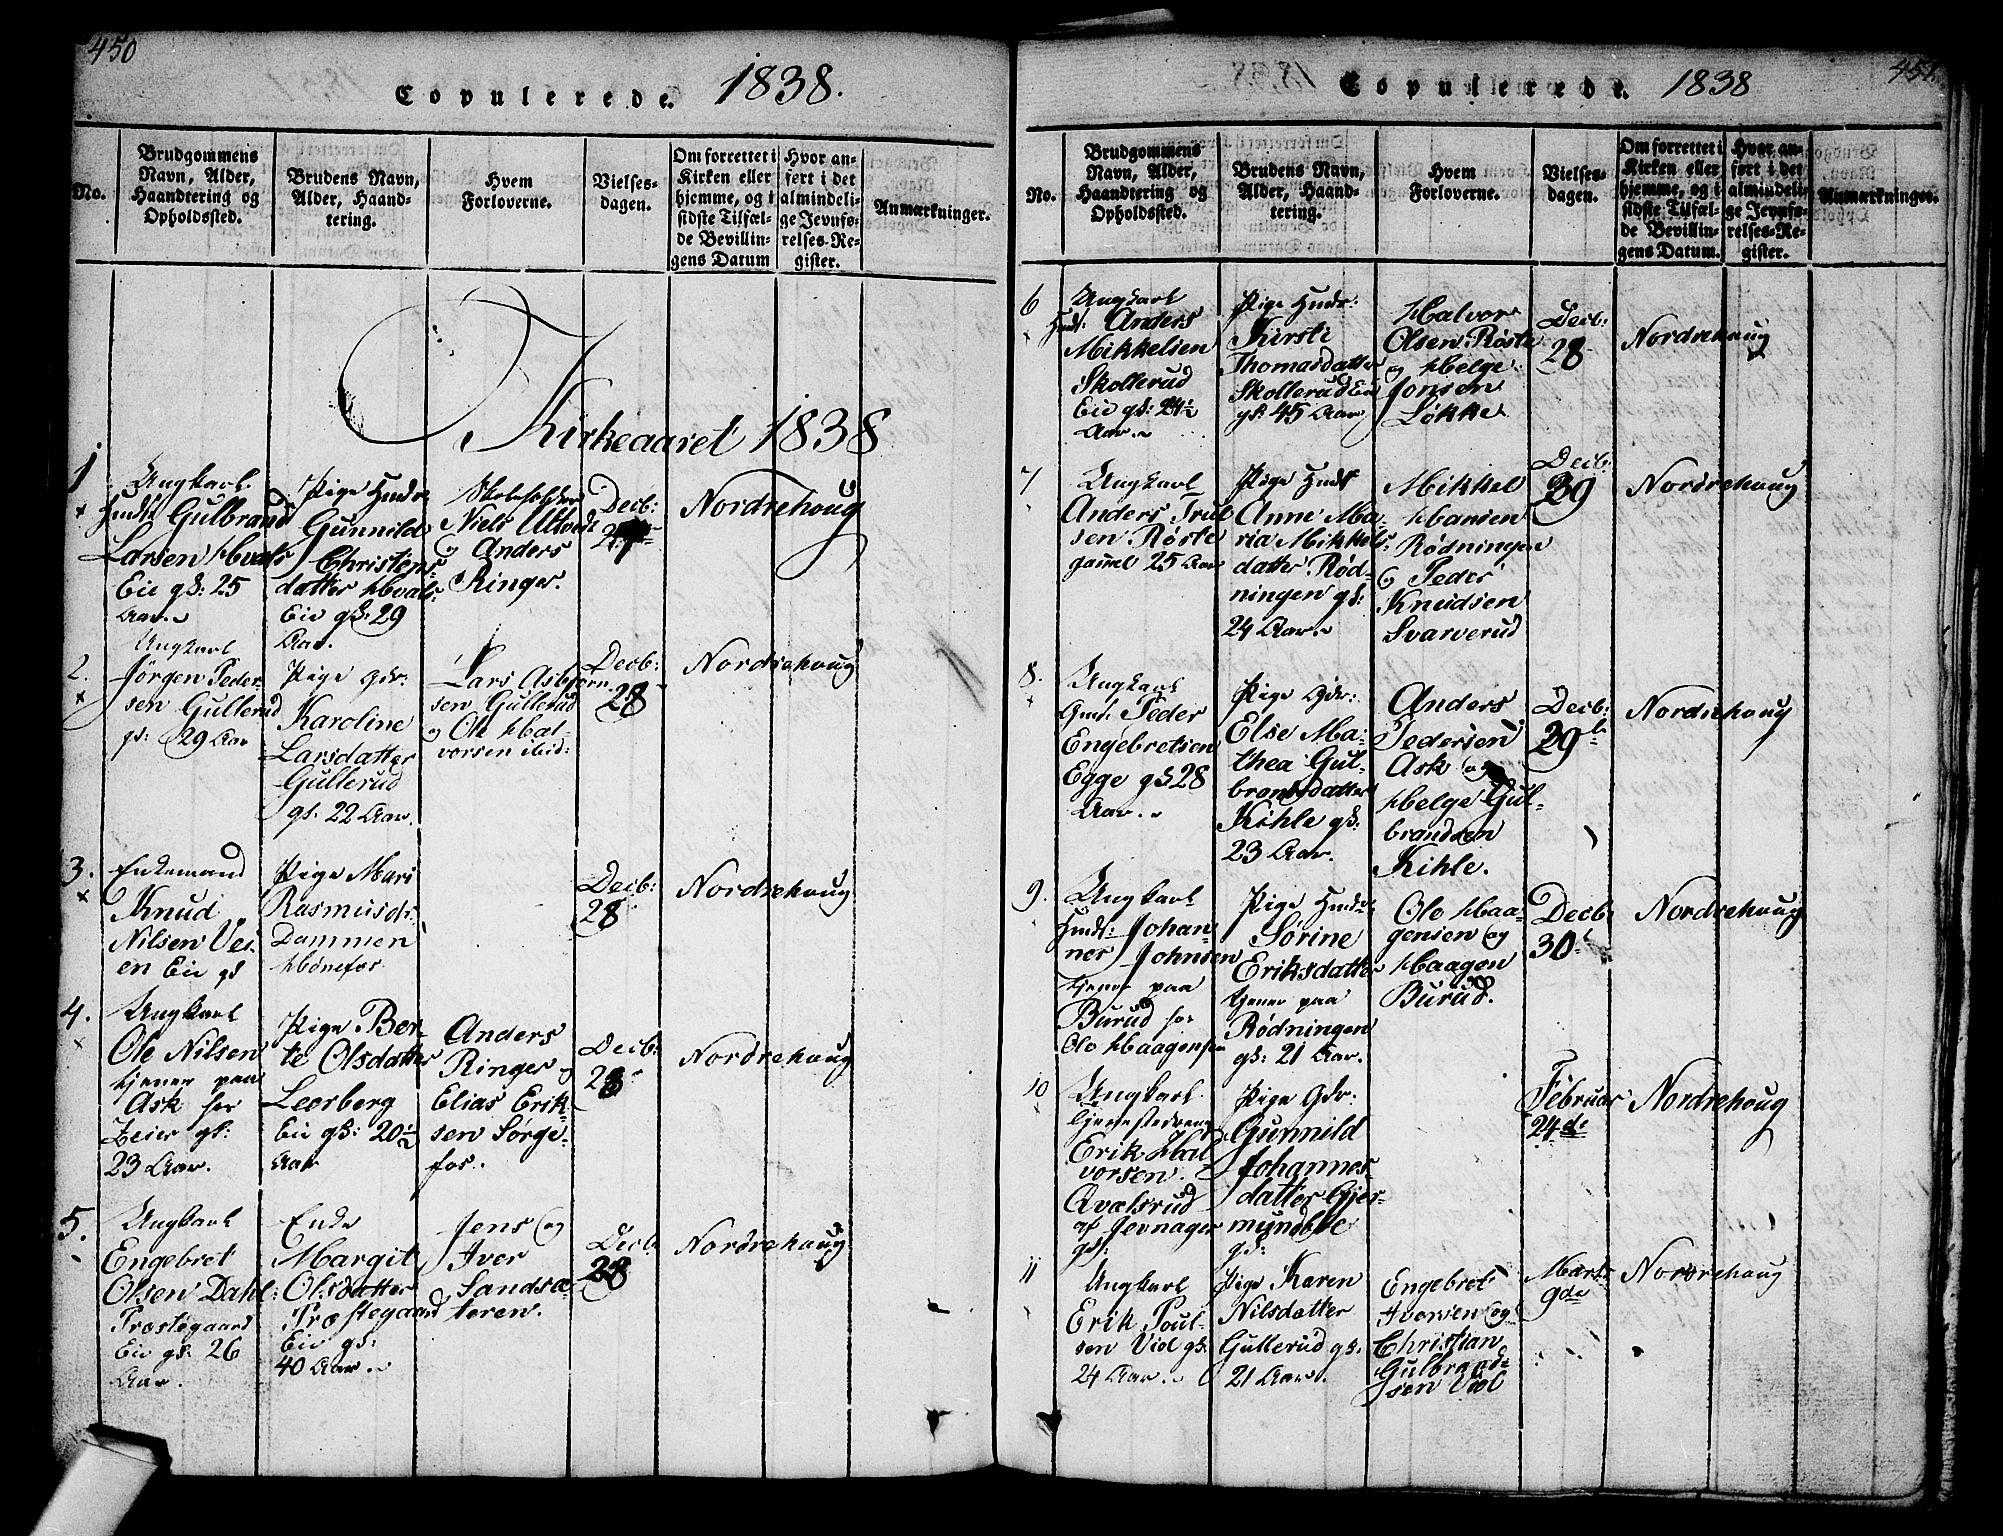 450
Copulerede. 1838.
No.
Brudgommens
Navn, Alder,
Haandtering og
Opholdssted.
Brudens Navn,
Alder, Haand-
tering.
Hvem
Forloverne.
Vielses-
dagen.
Om forrettet i
Kirken eller
hjemme, og i
sidste Tilfæl-
de Bevillin-
gens Datum
Hvor an-
ført i det
almindeli-
ge Jevnfø-
relses-Re-
gister.
Anmærkninger.
Kirkeaaret 1838
1
Ungkarl
Gulbrand
Larsen Hvals
Eie gl: 25
Aar.
Pige
Gunnild
Christens-
datter Hvals
Eie gl: 29
Aar.
Skoleholder
Niels Ultvedt
og Anders
Ringer.
Decb:
Nordrehoug
2.
Ungkarl
Jørgen Peder-
sen Gullerud
gl: 29 Aar
Pige Gdr:
Karoline
Larsdatter
Gullerud
gl: 22 Aar.
Lars Asbjørn-
sen Gullerud
og Ole Hal-
vorsen ibid:
Decb:
28
Nordrehoug
3.
Enkemand
Knud
Nilsen Vei-
en Eie gl
Pige Mari
Rasmusdr
Dammen
Hønefos
Decb:
28
Nordrehoug
4.
Ungkarl
Ole Nilsen
tjener paa
Ask hos
gl:
23 Aar.
Pige Ber-
te Olsdatter
Leerberg
Eie gl: 20½
Aar
Anders
Ringer og
Elias Erik-
sen Sørge-
fos.
Decb:
28
Nordrehoug
5.
Ungkarl
Engebret
Olsen Dahl
Præstegaard
Eie gl: 26
Aar.
Enke
Margit
Olsdatter
Præstegaard
Eie gl:
40 Aar.
Jens og
Iver
Sandsæ-
teren.
Decb
28
Nordrehoug
451.
Copulerede. 1838
No.
Brudgommens
Navn, Alder,
Haandtering og
Opholdssted.
Brudens Navn,
Alder, Haand-
tering.
Hvem
Forloverne.
Vielses-
dagen.
Om forrettet i
Kirken eller
hjemme, og i
sidste Tilfæl-
de Bevillin-
gens Datum.
Hvor an-
ført i det
almindeli-
ge Jevnfø-
relses-Re-
gister.
Anmærkninger.
6
Ungkarl
Anders
Mikkelsen
Skollerud
Eie gl: 24½
Aar.
Pige
Kirsti
Thomasdatter
Skollerud Eie
gl: 45 Aar
Halvor
Olsen Røste
og Helge
Jonsen
Løkke
Decb:
28
Nordrehoug
7
Ungkarl
Anders Trul-
sen Røste
gammel 25 Aar
Pige
Anne Ma-
ria Mikkels-
datter Rød-
ningen gl:
24 Aar.
Mikkel
Hansen
Rødningen
og Peder
Knudsen
Svarverud
Decb:
29
Nordrehoug
8.
Ungkarl
Peder
Engebretsen
Egge gl 28
Aar.
Pige Gdr:
Else Ma-
thea Gul-
brandsdatter
Kihle gl:
23 Aar.
Anders
Pedersen
Ask og
Helge Gul-
brandsen
Kihle.
Decb:
29
Nordrehoug
9.
Ungkarl
Johan-
nes Johnsen
tjener paa
Burud hos
Ole Haagensen
Pige
Sørine
Eriksdatter
tjener paa
Rødningen
gl: 21 Aar.
Ole Haa-
gensen og
Haagen
Burud.
Decb
30
Nordrehoug
10
Ungkarl
Erik Hal
vorsen
Avalsrud
af Jevnager
gl:
Pige Gdr:
Gunnild
Johannes-
datter Gjer-
mundboe
gl:
Februar
24de
Nordrehoug
11
Ungkarl
Erik Poul-
sen Viol gl:
24 Aar.
Pige Karen
Nilsdatter
Gullerud gl:
21 Aar.
Engebret
Iversen og
Christian
Gulbrand-
sen Viol
Marts
9de
Nordrehoug